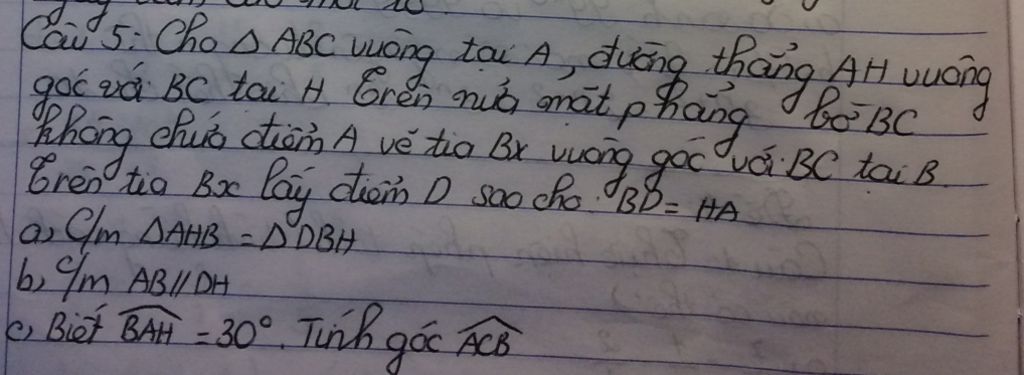 Câu 5: Cho △ ABC vuông tại A, đường thẳng AH vuông
góc với BC tại H. Trên nửa mặt phẳng bờ BC
không chứa điểm A vẽ tia Bx vuông góc với BC tại B.
Trên tia Bx lấy điểm D sao cho BD = HA
a) C/m △AHB = △DBH
b) C/m AB//DH
c) Biết \widehat{BAH} = 30°. Tính góc \widehat{ACB}